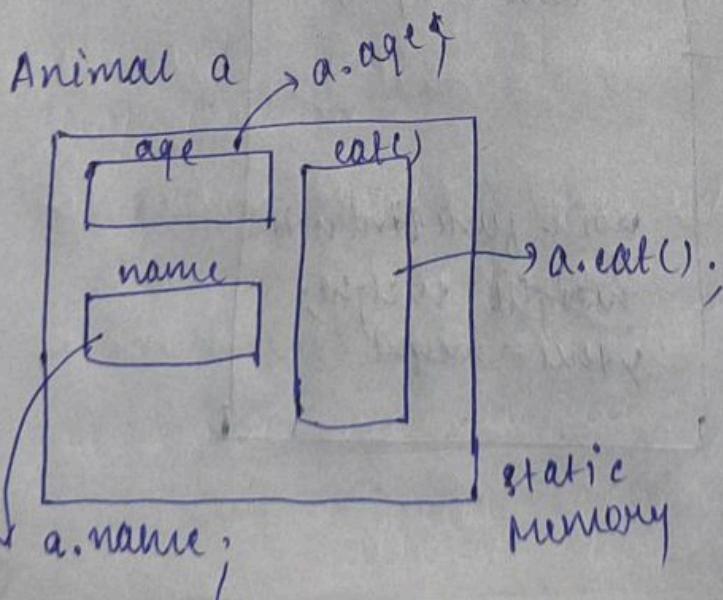 Animal a
a.age;
age
eat()
name
a.eat();
static
Memory
a.name;